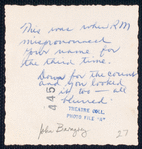 This was when RM
mispronounced
your name for
the third time.
Down for the count
and you looked
it too — all
blurred!
445
THEATRE COLL.
PHOTO FILE "B"
John Barragrey
27